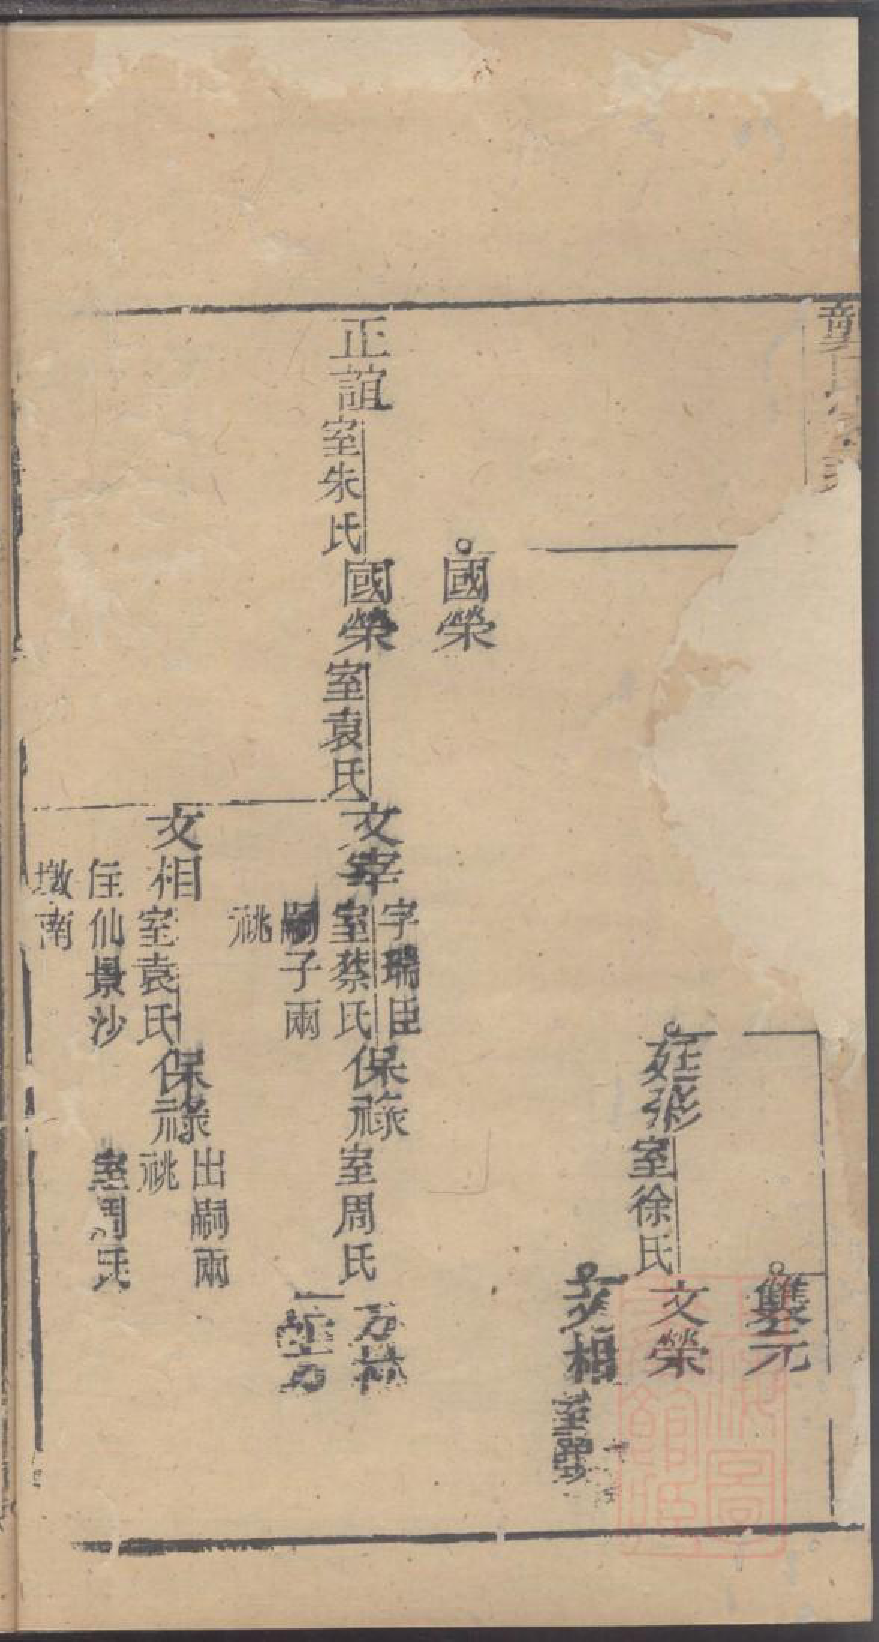 龔氏
雙元
文榮
廷彩
室徐氏
文相
國榮
正誼
室朱氏
國榮
室袁氏
文宰
字瑞臣
室蔡氏
嗣子兩
祧
保祿
室周氏
文相
室袁氏
住仙景沙
墩南
保祿
出嗣兩
祧
室周氏